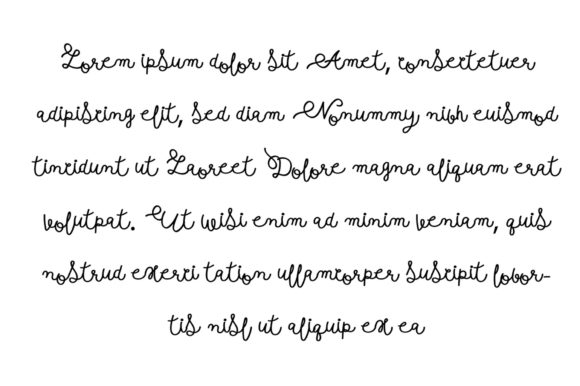 Lorem ipsum dolor sit Amet, consectetuer
adipiscing elit, sed diam Nonummy nibh euismod
tincidunt ut Laoreet Dolore magna aliquam erat
volutpat. Ut wisi enim ad minim veniam, quis
nostrud exerci tation ullamcorper suscipit lobor-
tis nisl ut aliquip ex ea